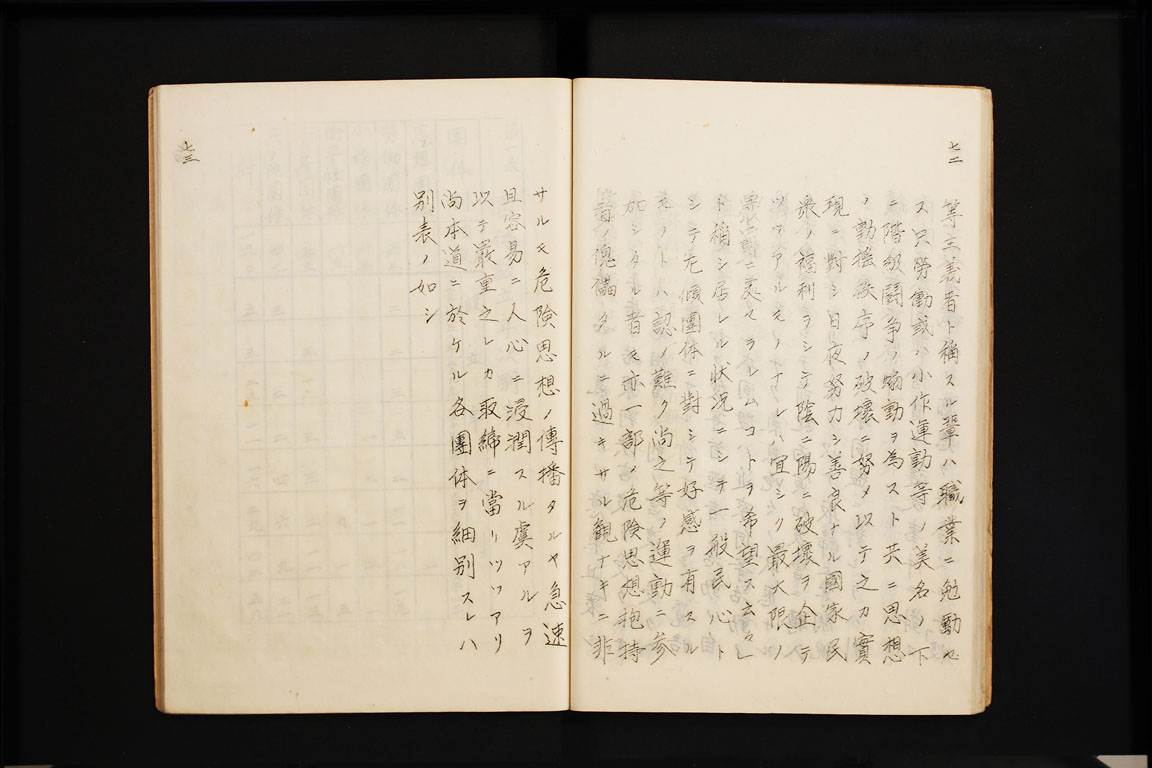 七二
等主義者ト稱スル輩ハ職業ニ勉勵セ
ス只勞働或ハ小作運動等ノ美名ノ下
ニ階級鬪争ノ煽動ヲ為スト共ニ思想
ノ動搖秩序ノ破壞ニ努メ以テ之カ實
現ニ對シ日夜努力シ善良ナル國家民
衆ノ福利ヲシテ陰ニ陽ニ破壞ヲ企テ
ツヽアルモノナレハ宜シク最大限ノ
懲罰ニ處セラレムコトヲ希望ス云々」
ト稱シ居レル状况ニシテ一般民心ト
シテ左傾團体ニ對シテ好感ヲ有スル
モノトハ認メ難ク尚之等ノ運動ニ参
加シタル者モ亦一部ノ危険思想抱持
者ノ傀儡タルニ過キサル観ナキニ非
七三
サルモ危険思想ノ傳播タルヤ急速
且容易ニ人心ニ浸潤スル虞アルヲ
以テ嚴重之レカ取締ニ當リツツアリ
尚本道ニ於ケル各團体ヲ細別スレハ
別表ノ如シ